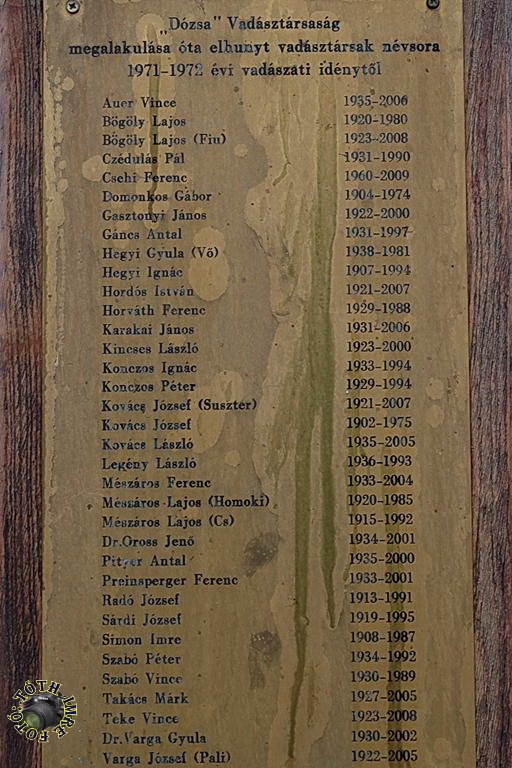 „Dózsa" Vadásztársaság
megalakulása óta elhunyt vadásztársak névsora
1971-1972 évi vadászati idénytől
Auer Vince 1935-2006
Bögöly Lajos 1920-1980
Bögöly Lajos (Fiu) 1923-2008
Czédulás Pál 1931-1990
Csehi Ferenc 1960-2009
Domonkos Gábor 1904-1974
Gasztonyi János 1922-2000
Gáncs Antal 1931-1997
Hegyi Gyula (Vő) 1938-1981
Hegyi Ignác 1907-1994
Hordós István 1921-2007
Horváth Ferenc 1929-1988
Karakai János 1931-2006
Kincses László 1923-2000
Konczos Ignác 1933-1994
Konczos Péter 1929-1994
Kovács József (Suszter) 1921-2007
Kovács József 1902-1975
Kovács László 1935-2005
Legény László 1936-1993
Mészáros Ferenc 1933-2004
Mészáros Lajos (Homoki) 1920-1985
Mészáros Lajos (Cs) 1915-1992
Dr.Oross Jenő 1934-2001
Pitzer Antal 1935-2000
Preinsperger Ferenc 1933-2001
Radó József 1913-1991
Sárdi József 1919-1995
Simon Imre 1908-1987
Szabó Péter 1934-1992
Szabó Vince 1930-1989
Takács Márk 1927-2005
Teke Vince 1923-2008
Dr.Varga Gyula 1930-2002
Varga József (Pali) 1922-2005
FOTÓ: TÓTH IMRE